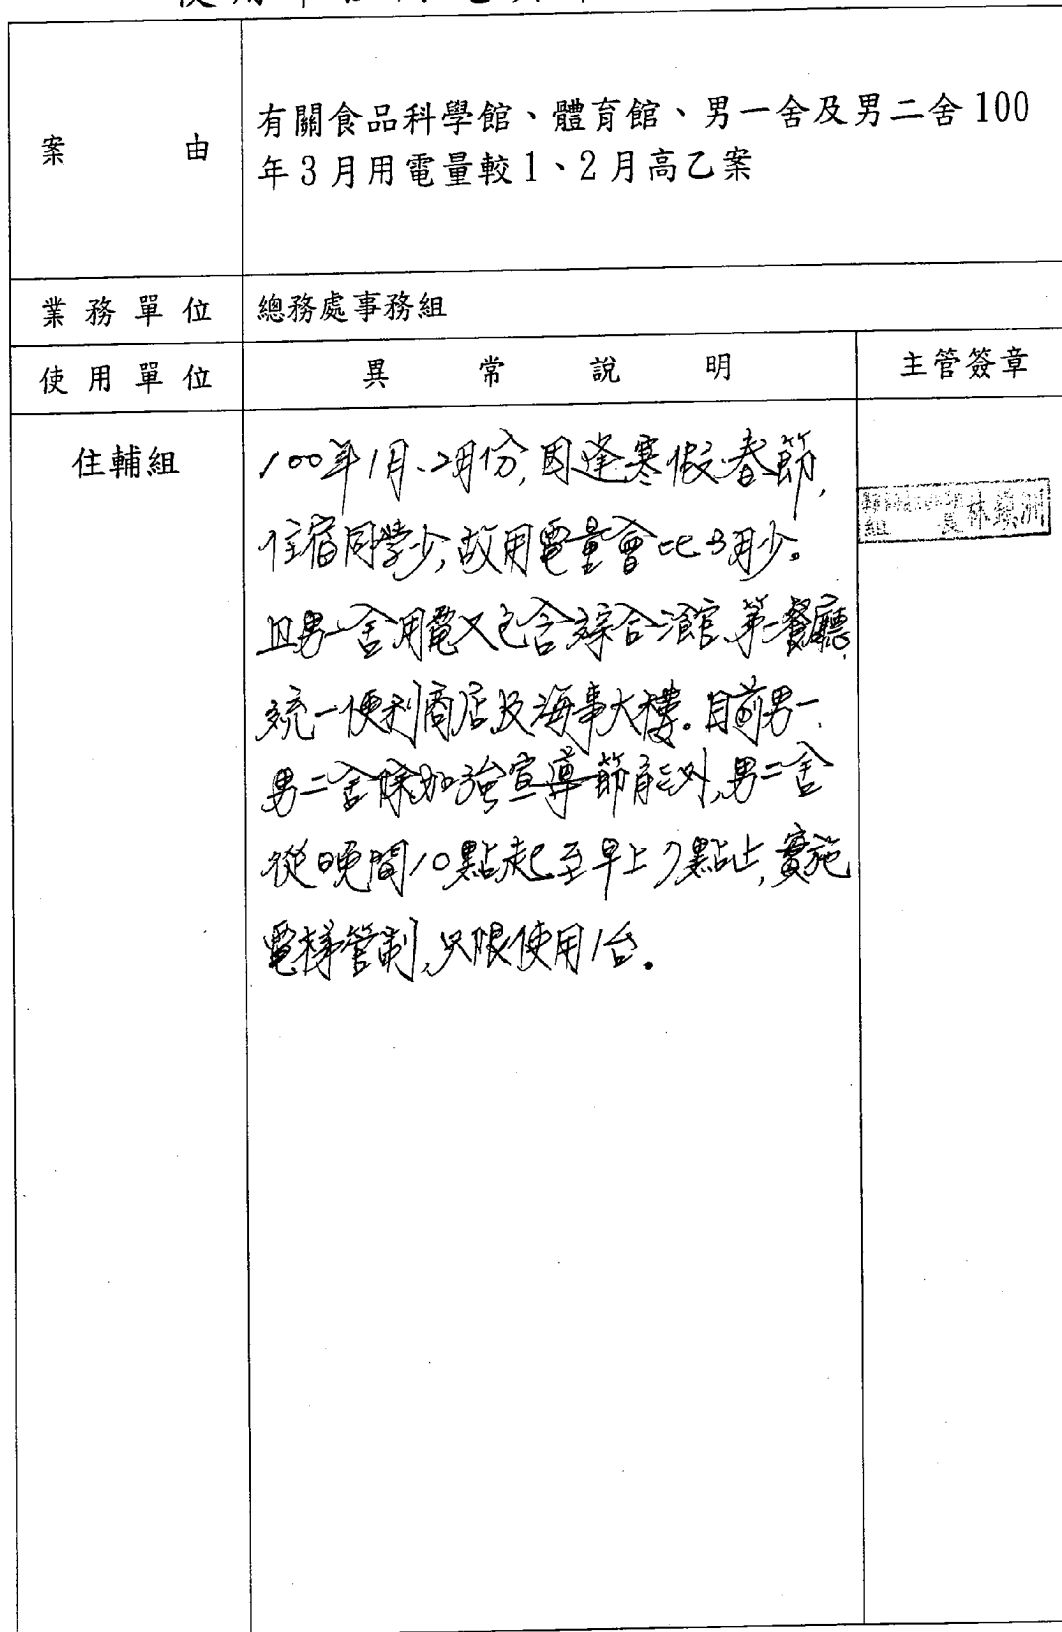 案由
有關食品科學館、體育館、男一舍及男二舍100
年3月用電量較1、2月高乙案
業務單位
總務處事務組
使用單位
異常說明
主管簽章
住輔組
100年1月、2月份,因逢寒假、春節,
住宿同學少,故用電量會比3月少。
且男一舍用電又包含綜合活館、第一餐廳、
統一便利商店及海事大樓。目前男一、
男二舍除加強宣導節能外,男二舍
從晚間10點起至早上7點止,實施
電梯管制,只限使用1台。
組長林鎮洲